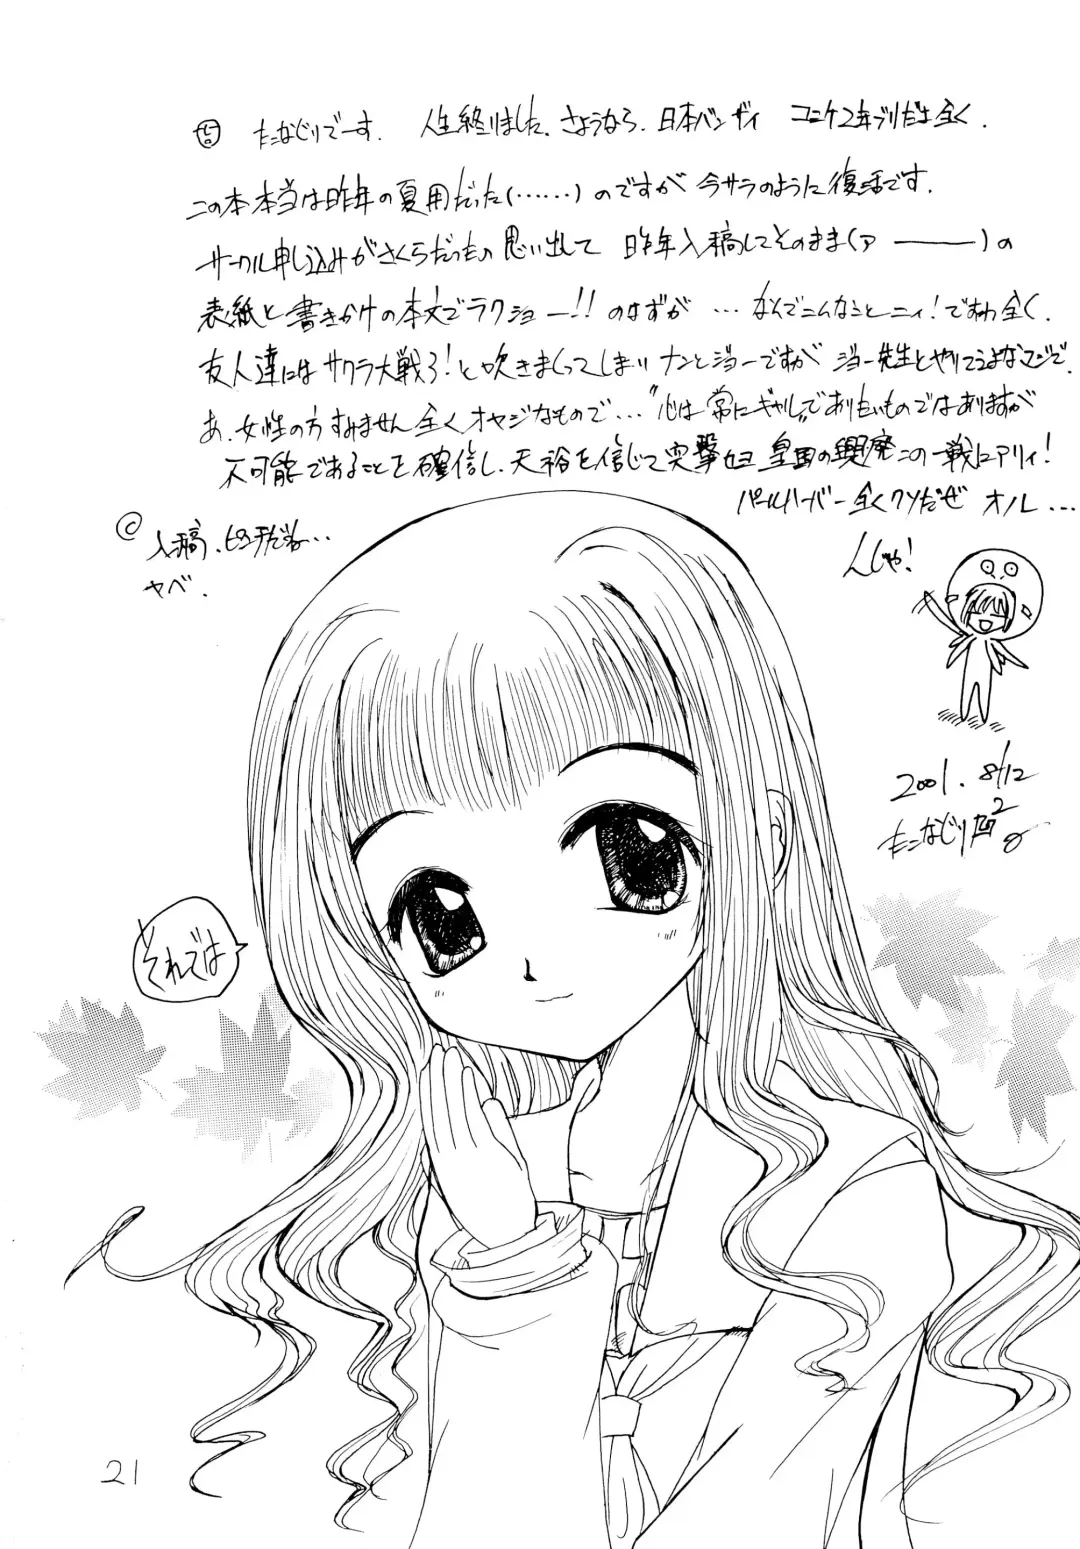 たこなじりでーす。 人生終りました、さようなら、日本バンザイ コミケ2年ブリだよ全く.
この本本当は昨年の夏用だった(……)のですが 今サラのように復活です.
サークル申し込みがさくらだったの思い出して 昨年入稿してそのまま(ア ―――)の
表紙と書きかけの本文でラクショー!! のはずが …なんでこんなことニィ!ですわ全く.
友人達にはサクラ大戦3!と吹きまくってしまい ナンとジョーですが ジョー先生と
あ、女性の方すみません全くオヤジなもので…"心は常にギャル"でありたいものではありますが
不可能であることを確信し、天裕を信じて突撃セヨ 皇国の興廃この一戦にアリィ!
パールハーバー全くクソだぜ オル…
入稿、ピンチだね…
ヤベ.
んじゃ!
2001. 8/12
たこなじり
それでは
21